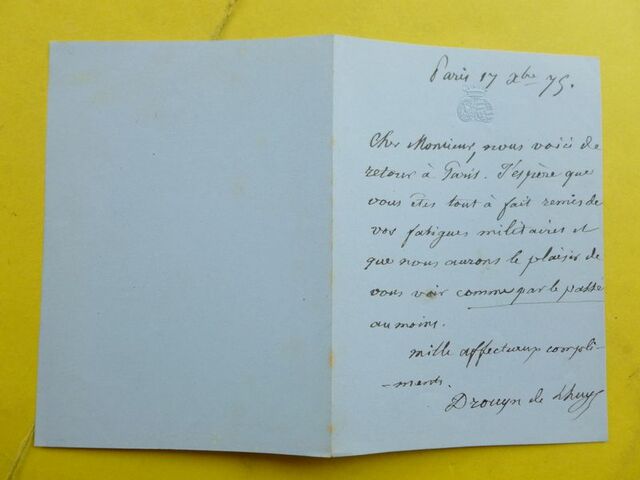 Paris 17 Xbre 75.
Cher Monsieur, nous voici de
retour à Paris. J'espère que
vous êtes tout à fait remis de
vos fatigues militaires et
que nous aurons le plaisir de
vous voir comme par le passé
au moins.
mille affectueux compli-
-ments.
Drouyn de Lhuys